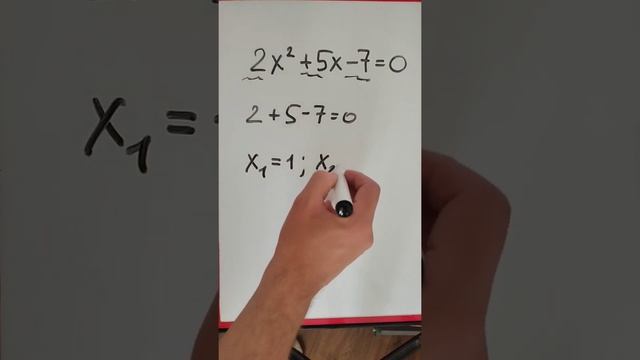 2x² + 5x - 7 = 0
2 + 5 - 7 = 0
x₁ = 1 ; x₂
x₁ =